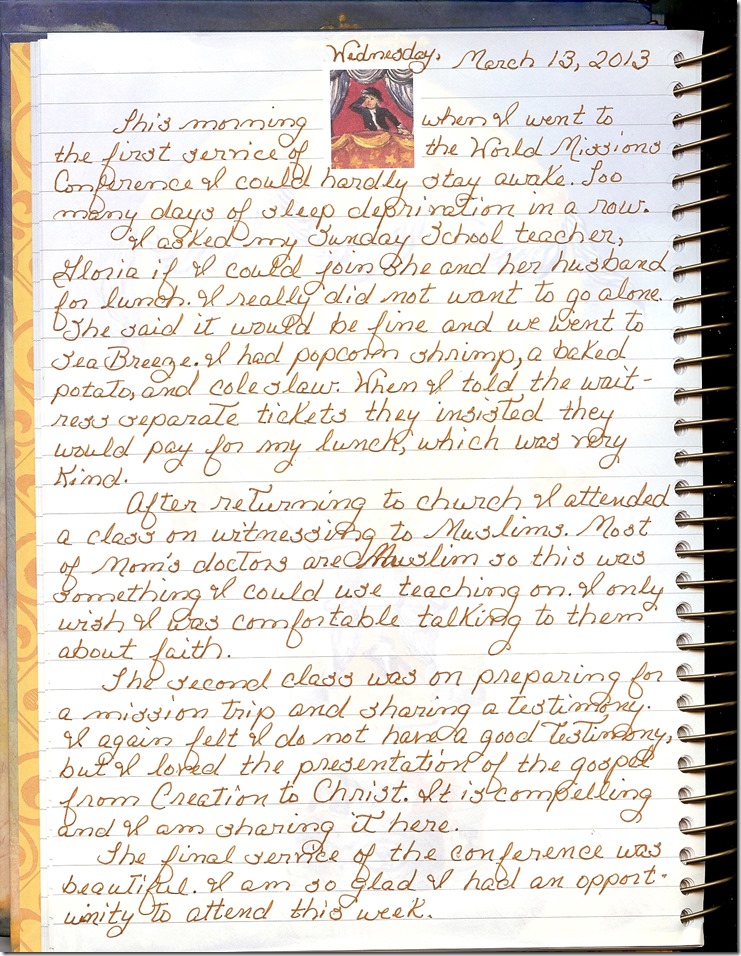 Wednesday, March 13, 2013
This morning when I went to
the first service of the World Missions
Conference I could hardly stay awake. Too
many days of sleep deprivation in a row.
I asked my Sunday School teacher,
Gloria if I could join she and her husband
for lunch. I really did not want to go alone.
She said it would be fine and we went to
Sea Breeze. I had popcorn shrimp, a baked
potato, and cole slaw. When I told the wait-
ress separate tickets they insisted they
would pay for my lunch, which was very
kind.
After returning to church I attended
a class on witnessing to Muslims. Most
of Mom's doctors are Muslim so this was
something I could use teaching on. I only
wish I was comfortable talking to them
about faith.
The second class was on preparing for
a mission trip and sharing a testimony.
I again felt I do not have a good testimony,
but I loved the presentation of the gospel
from Creation to Christ. It is compelling
and I am sharing it here.
The final service of the conference was
beautiful. I am so glad I had an opport-
unity to attend this week.